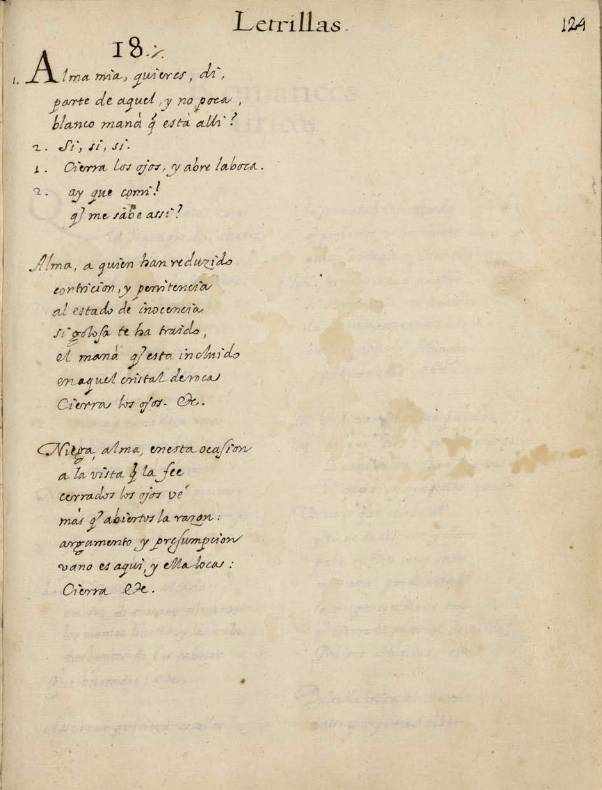 Letrillas.
124
18.
1. Alma mia, quieres, di,
parte de aquel, y no poca,
blanco maná q̃ està alli?
2. Si, si, si.
1. Cierra los ojos, y abre la boca.
2. ay que comi!
q̃ me sabe assi?
Alma, a quien han reduzido
contricion, y penitencia
al estado de inocencia
si golosa te ha traido,
el maná q̃ esta incluido
en aquel cristal de roca
Cierra los ojos. &c.
Niega, alma, en esta ocasion
a la vista q̃ la fee
cerrados los ojos vé
más q̃ abiertos la razon:
argumento y presumpcion
vano es aqui, y ella loca:
Cierra &c.